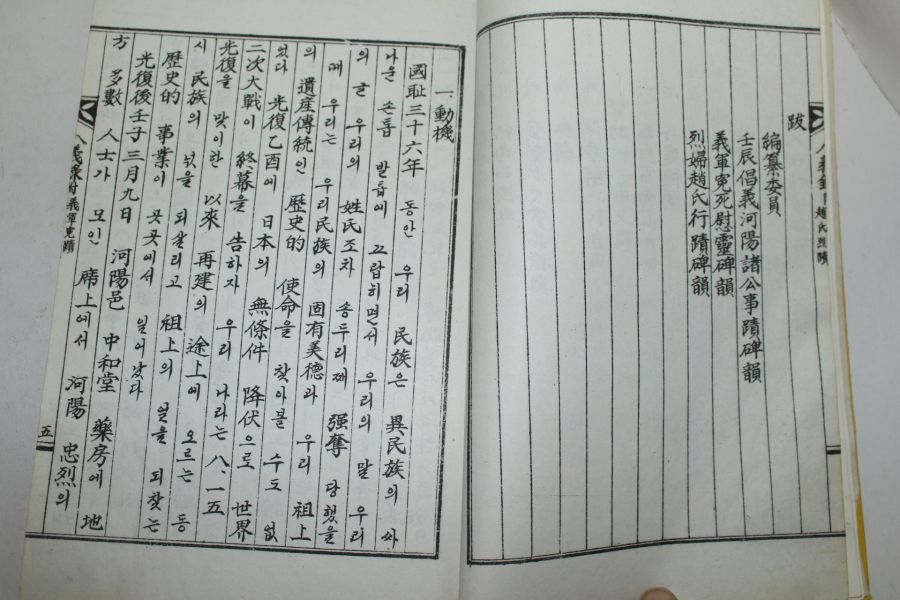 跋
編纂委員
壬辰倡義河陽諸公事蹟碑韻
義軍寃死慰靈碑韻
烈婦趙氏行蹟碑韻
一 動機
國耻三十六年 동안 우리 民族은 異民族의 싸
나운 손톱 발톱에 끄랍히면서 우리의 말 우리
의 글 우리의 姓氏조차 송두리째 强奪 당했을
때 우리는 우리民族의 固有美德과 우리 祖上
의 遺産傳統인 歷史的 使命을 찾아볼 수도 없
었다 光復乙酉에 日本의 無條件 降伏으로 世界
二次大戰이 終幕을 告하자 우리 나라는 八·一五
光復을 맞이한 以來 再建의 途上에 오르는 동
시 民族의 넋을 되살리고 祖上의 얼을 되찾는
歷史的 事業이 곳곳에서 일어났다
光復後壬子三月九日 河陽邑 中和堂 藥房에 地
方 多數 人士가 모인 席上에서 河陽 忠烈의
五